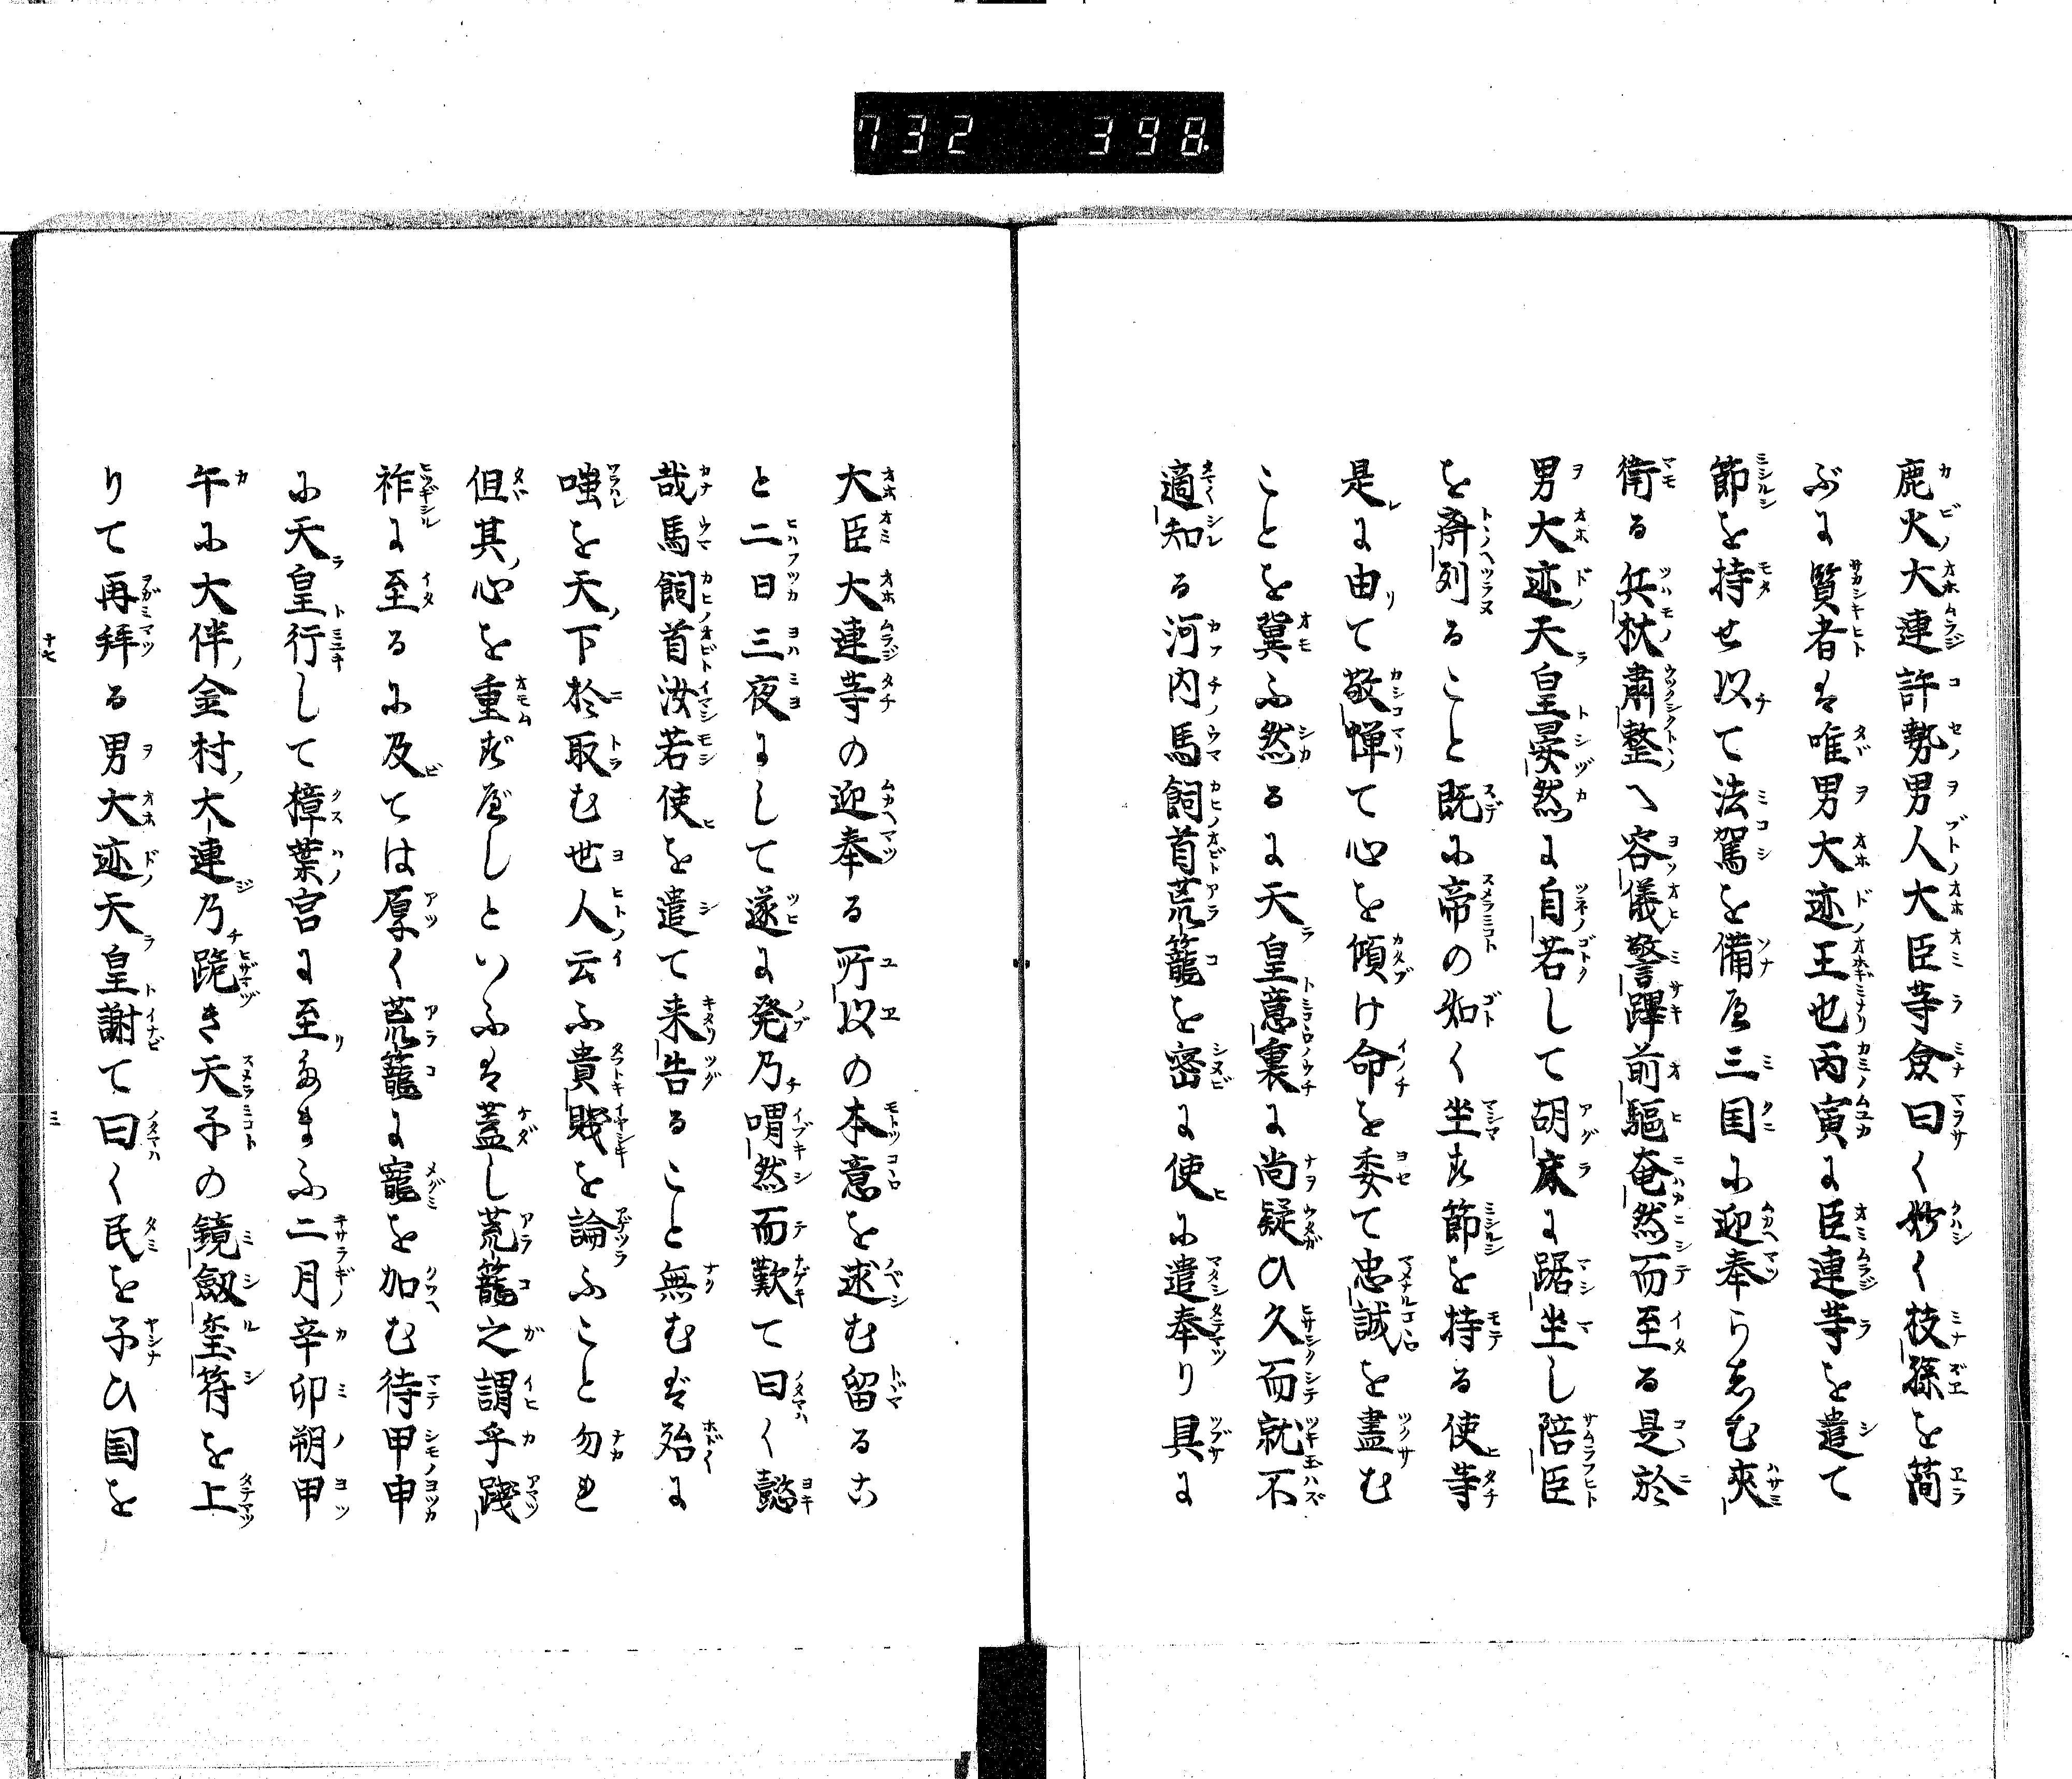 732 398.
鹿火大連許勢男人大臣等僉曰く妙く枝孫を簡
ぶに賢者は唯男大迹王也丙寅に臣連等を遣て
節を持せ以て法駕を備へ三国に迎奉らしむ夾
衛る兵杖粛整へ容儀警蹕前駆奄然而至る是於
男大迹天皇晏然に自若して胡床に踞坐し陪臣
を斉列ること既に帝の如く坐す節を持る使等
是に由て敬憚て心を傾け命を委て忠誠を盡む
ことを冀ふ然るに天皇意裏に尚疑ひ久而就不
適知る河内馬飼首荒籠を密に使に遣奉り具に
大臣大連等の迎奉る所以の本意を述む留るこ
と二日三夜にして遂に発乃喟然而歎て曰く懿
哉馬飼首汝若使を遣て来告ること無むば殆に
嗤を天下於取む世人云ふ貴賤を論ふこと勿れ
但其心を重ずべしといふは蓋し荒籠之謂乎践
祚に至るに及ては厚く荒籠に寵を加む待甲申
に天皇行して樟葉宮に至たまふ二月辛卯朔甲
午に大伴金村大連乃跪き天子の鏡劔璽符を上
りて再拝る男大迹天皇謝て曰く民を子ひ国を
十七
三